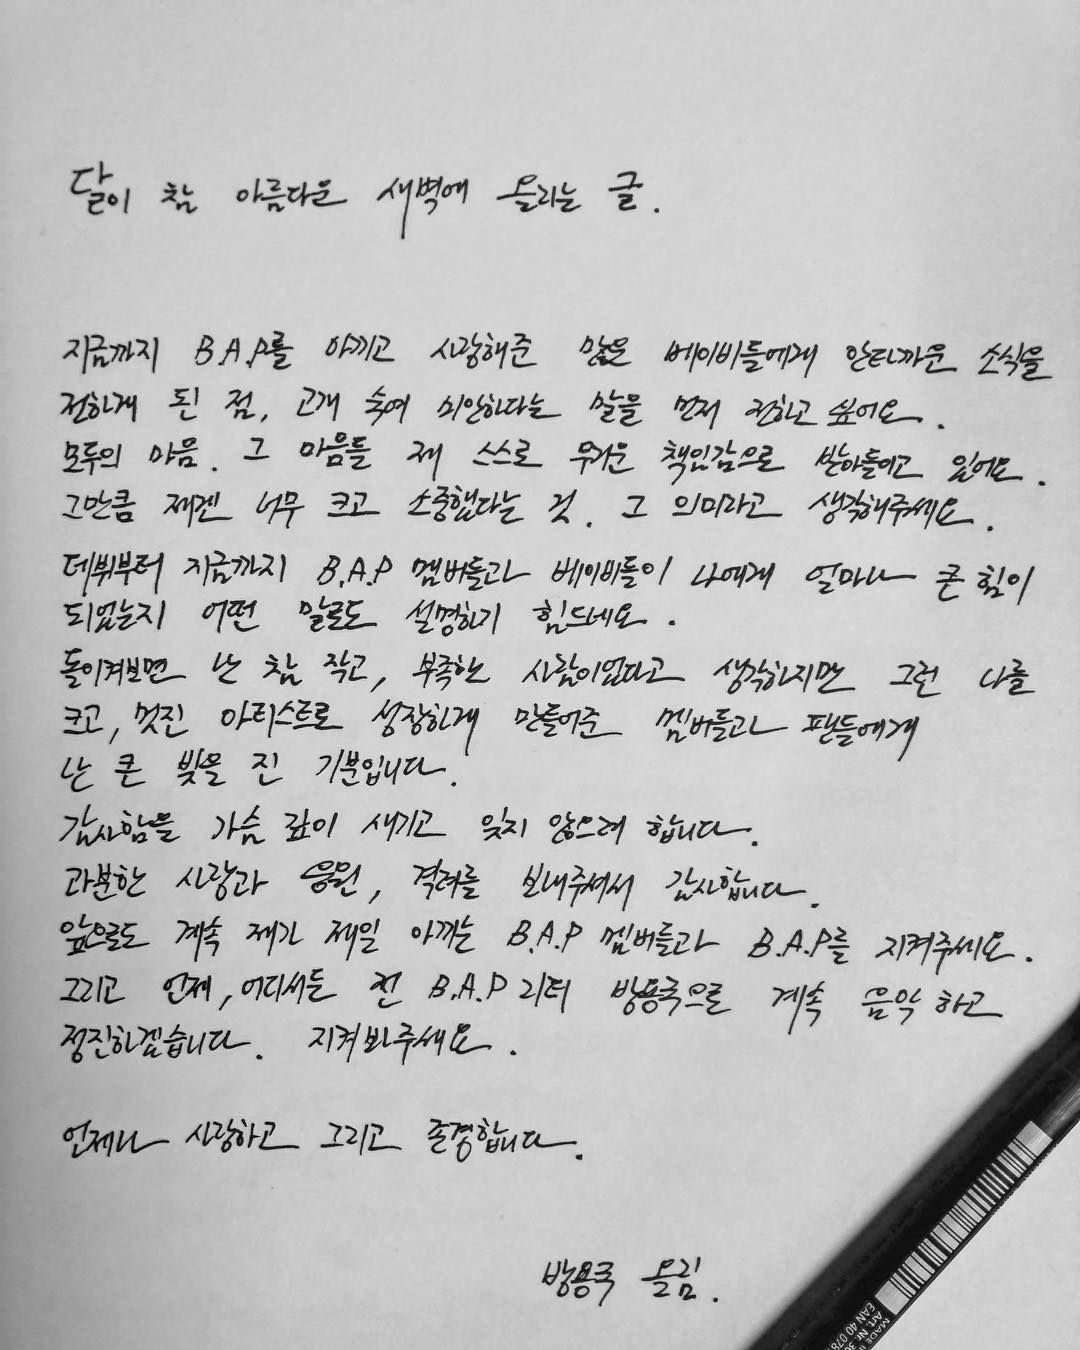 달이 참 아름다운 새벽에 올리는 글.
지금까지 B.A.P를 아끼고 사랑해준 많은 베이비들에게 안타까운 소식을
전하게 된 점, 고개 숙여 미안하다는 말을 먼저 전하고 싶어요.
모두의 마음. 그 마음들 제 스스로 무거운 책임감으로 받아들이고 있어요.
그만큼 제겐 너무 크고 소중했다는 것. 그 의미라고 생각해주세요.
데뷔부터 지금까지 B.A.P 멤버들과 베이비들이 나에게 얼마나 큰 힘이
되었는지 어떤 말로도 설명하기 힘드네요.
돌이켜보면 난 참 작고, 부족한 사람이었다고 생각하지만 그런 나를
크고, 멋진 아티스트로 성장하게 만들어준 멤버들과 팬들에게
난 큰 빚을 진 기분입니다.
감사함을 가슴 깊이 새기고 잊지 않으려 합니다.
과분한 사랑과 응원, 격려를 보내주셔서 감사합니다.
앞으로도 계속 제가 제일 아끼는 B.A.P 멤버들과 B.A.P를 지켜주세요.
그리고 언제, 어디서든 전 B.A.P 리더 방용국으로 계속 음악 하고
정진하겠습니다. 지켜봐주세요.
언제나 사랑하고 그리고 존경합니다.
방용국 올림.
MADE I
Art. Nr. 30
EAN 40 078